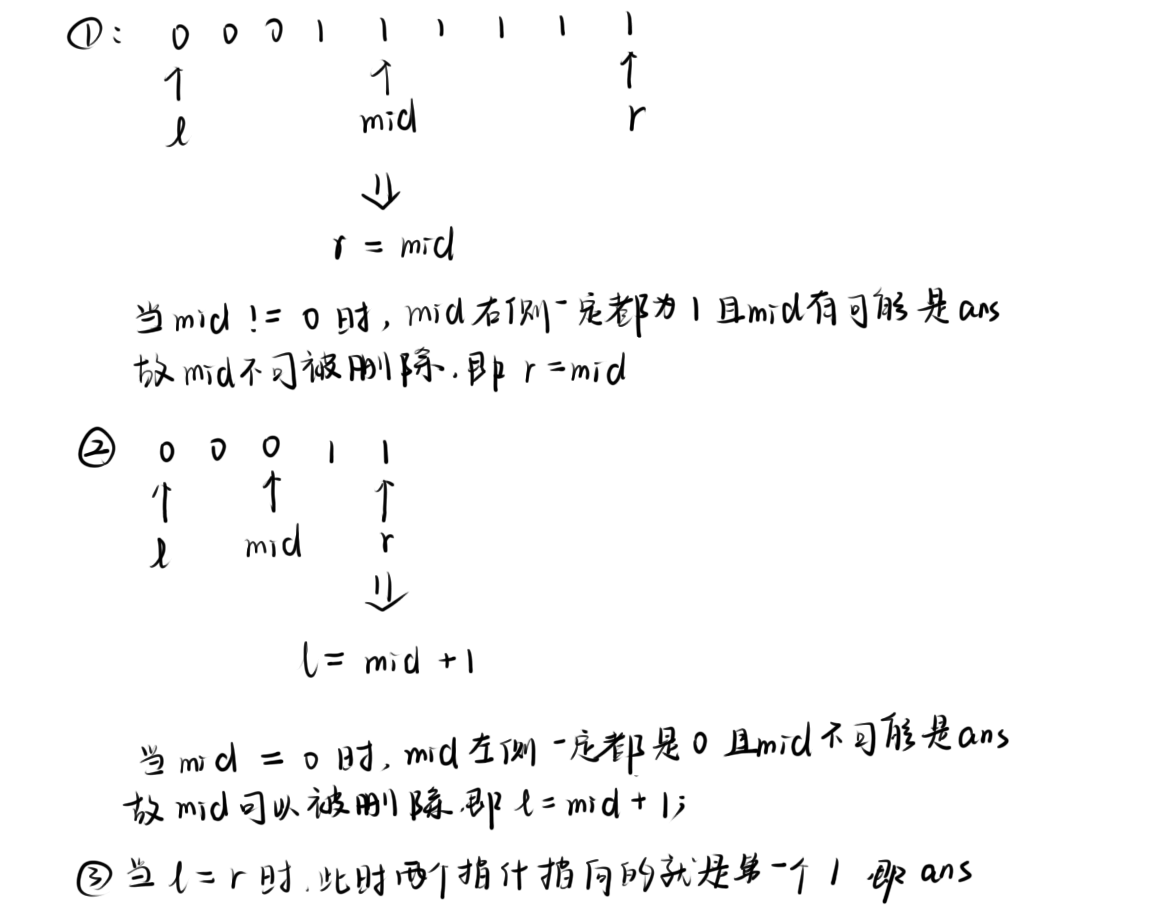 ①: 0 0 0 1 1 1 1 1 1
↑ ↑ ↑
l mid r
⇓
r = mid
当mid != 0 时, mid右侧一定都为1且mid有可能是ans
故mid不可被删除.即 r=mid
② 0 0 0 1 1
↑ ↑ ↑
l mid r
⇓
l = mid +1
当mid = 0 时, mid左侧一定都是0 且mid不可能是ans
故mid可以被删除.即 l=mid+1;
③ 当 l=r 时.此时两个指针指向的就是第一个 1 .即 ans